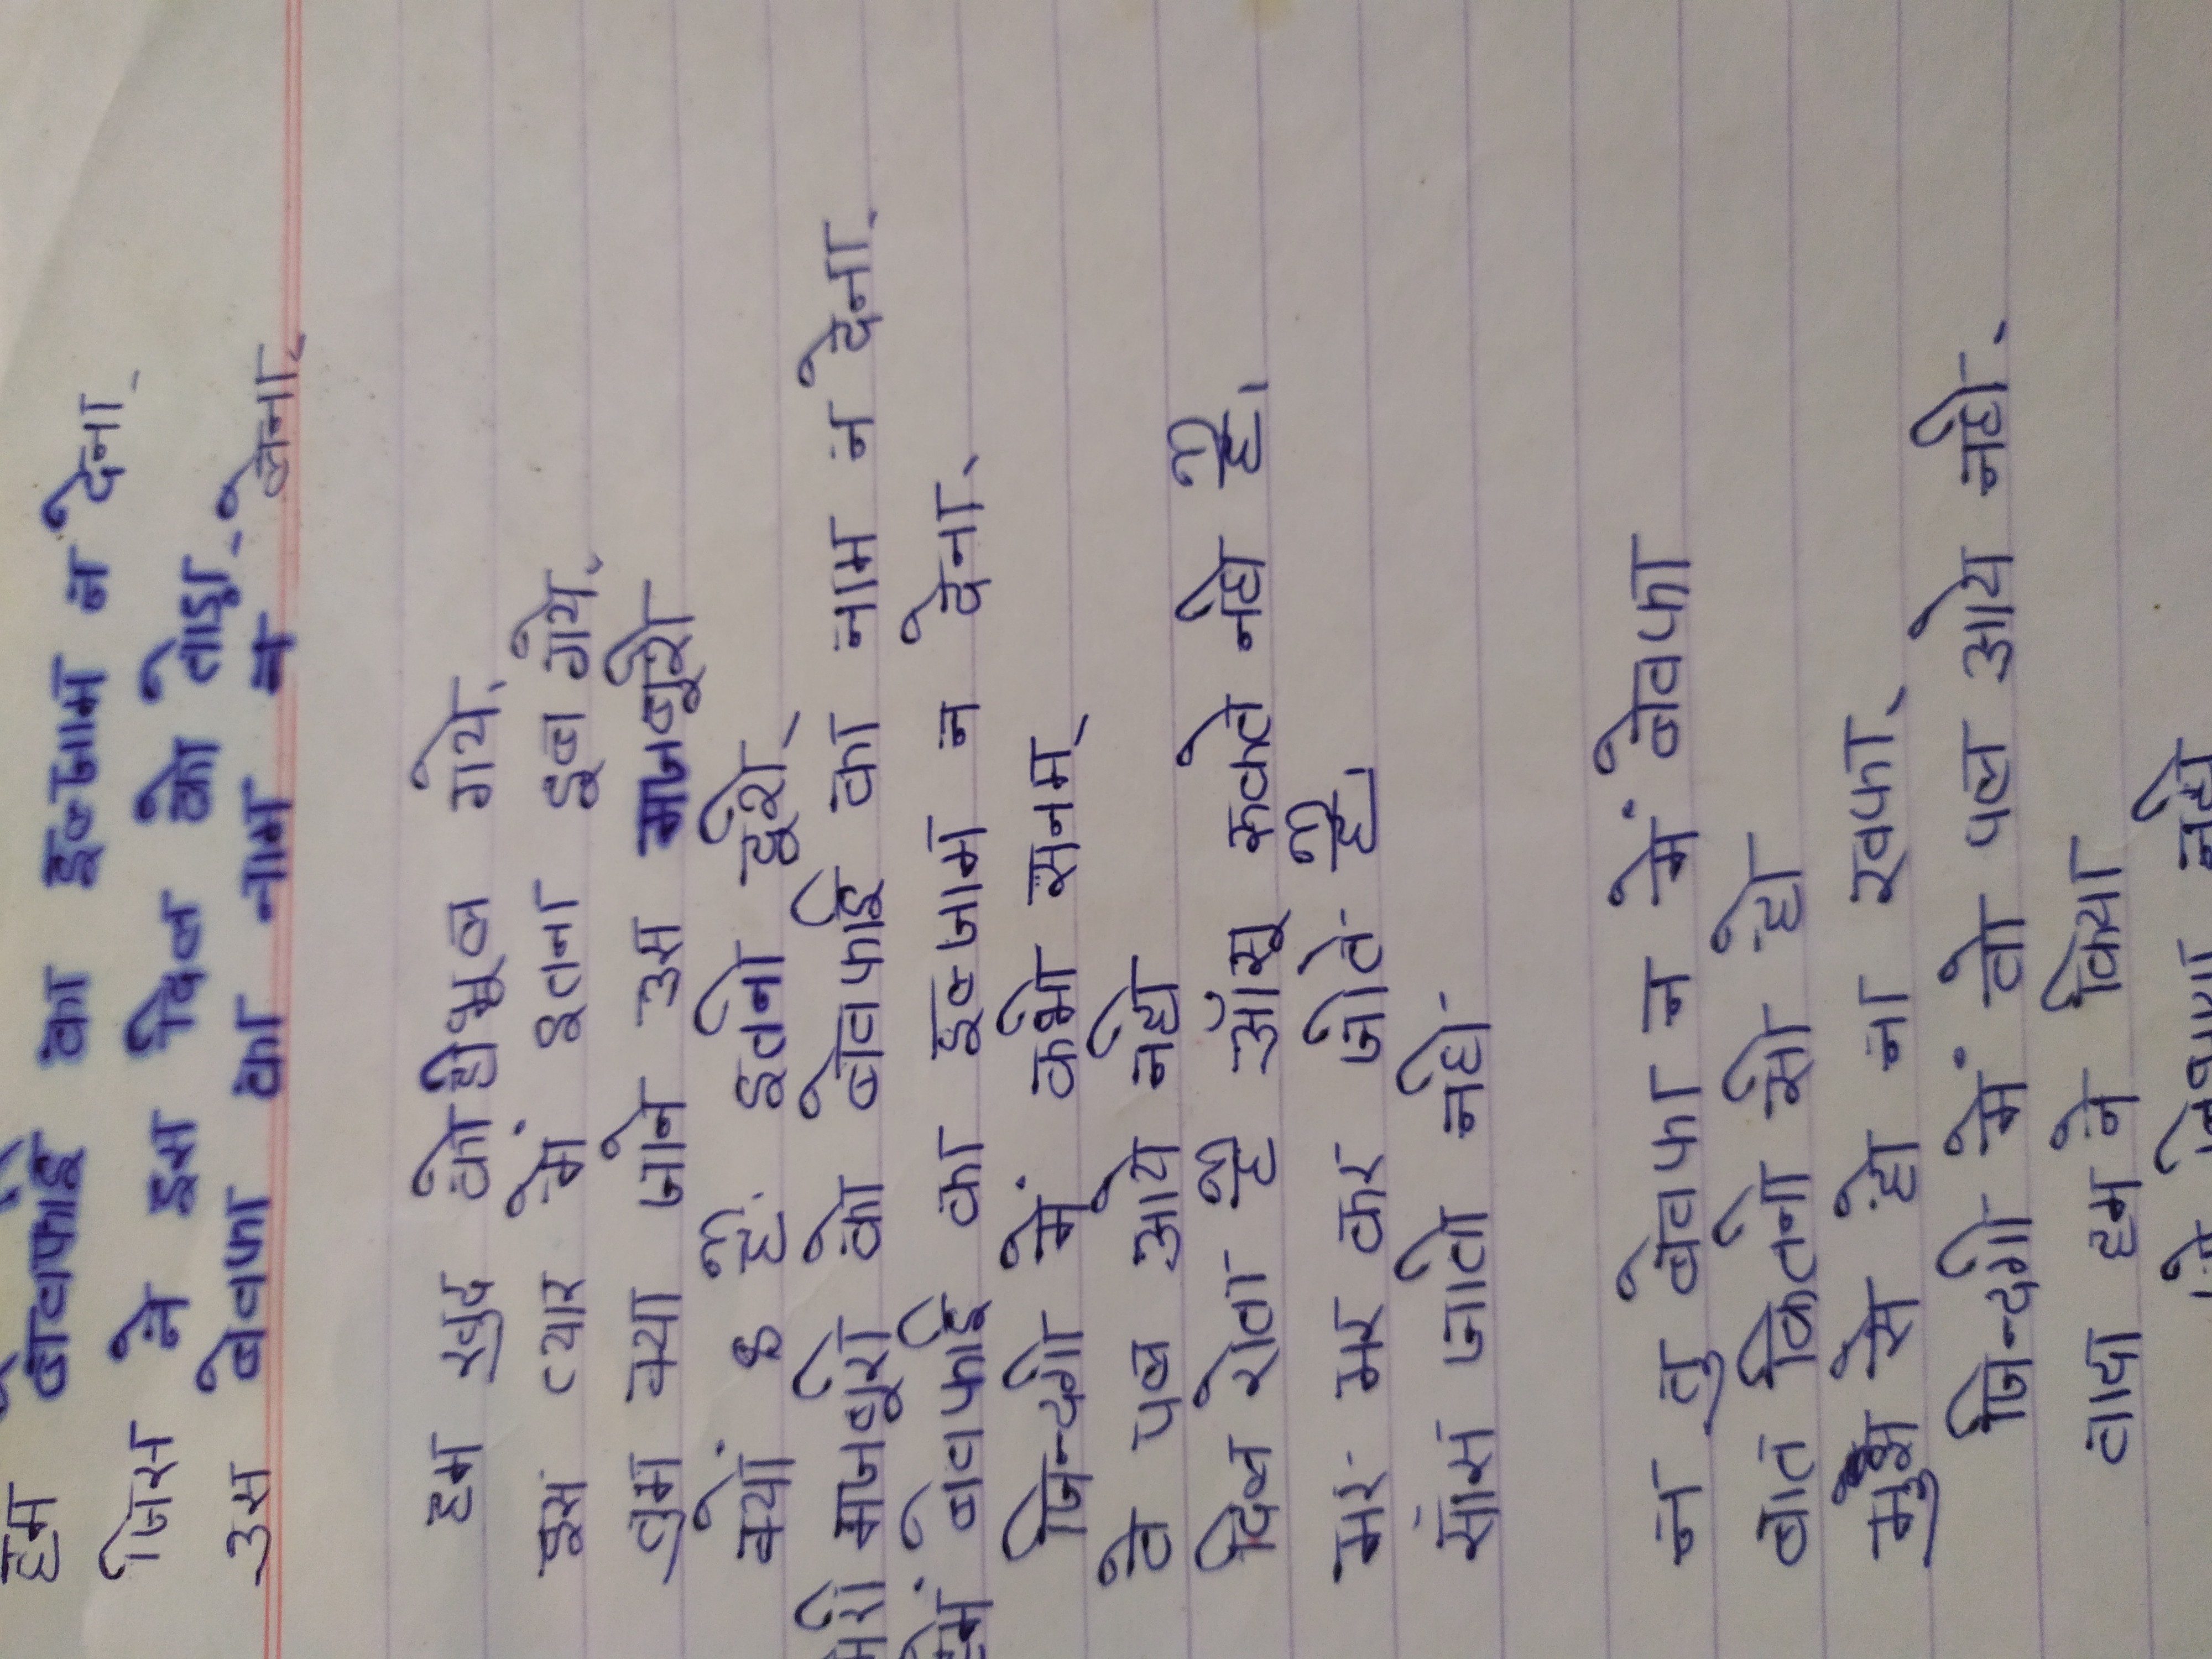 हमे बेवफाई का इल्जाम न देना
जिस ने इस दिल को तोड़ा
उस बेवफा का नाम न लेना
हम खुद को ही भूल गये
इस प्यार में इतना डूब गये
तुम क्या जाने उस मजबूरी
क्यों है इतनी दूरी
मेरी मजबूरी को बेवफाई का नाम न देना
हमें बेवफाई का इल्जाम न देना
जिन्दगी में कभी सनम
वे पल आये नही
दिल रोता है आँसू रूकते नही है।
मर मर कर जीते है।
साँस जाती नही
न तु बेवफा न में बेवफा
बात कितनी सी ही
मुझ से हो ना खफा
जिन्दगी में वो पल आये नही
वादा हम ने किया